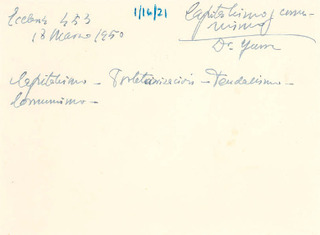 Ecclesia 453
18 Marzo 1950
1/16/21
Capitalismo, comu-
nismo
Dr. Yurre
Capitalismo - Proletarización - Feudalismo -
Comunismo -